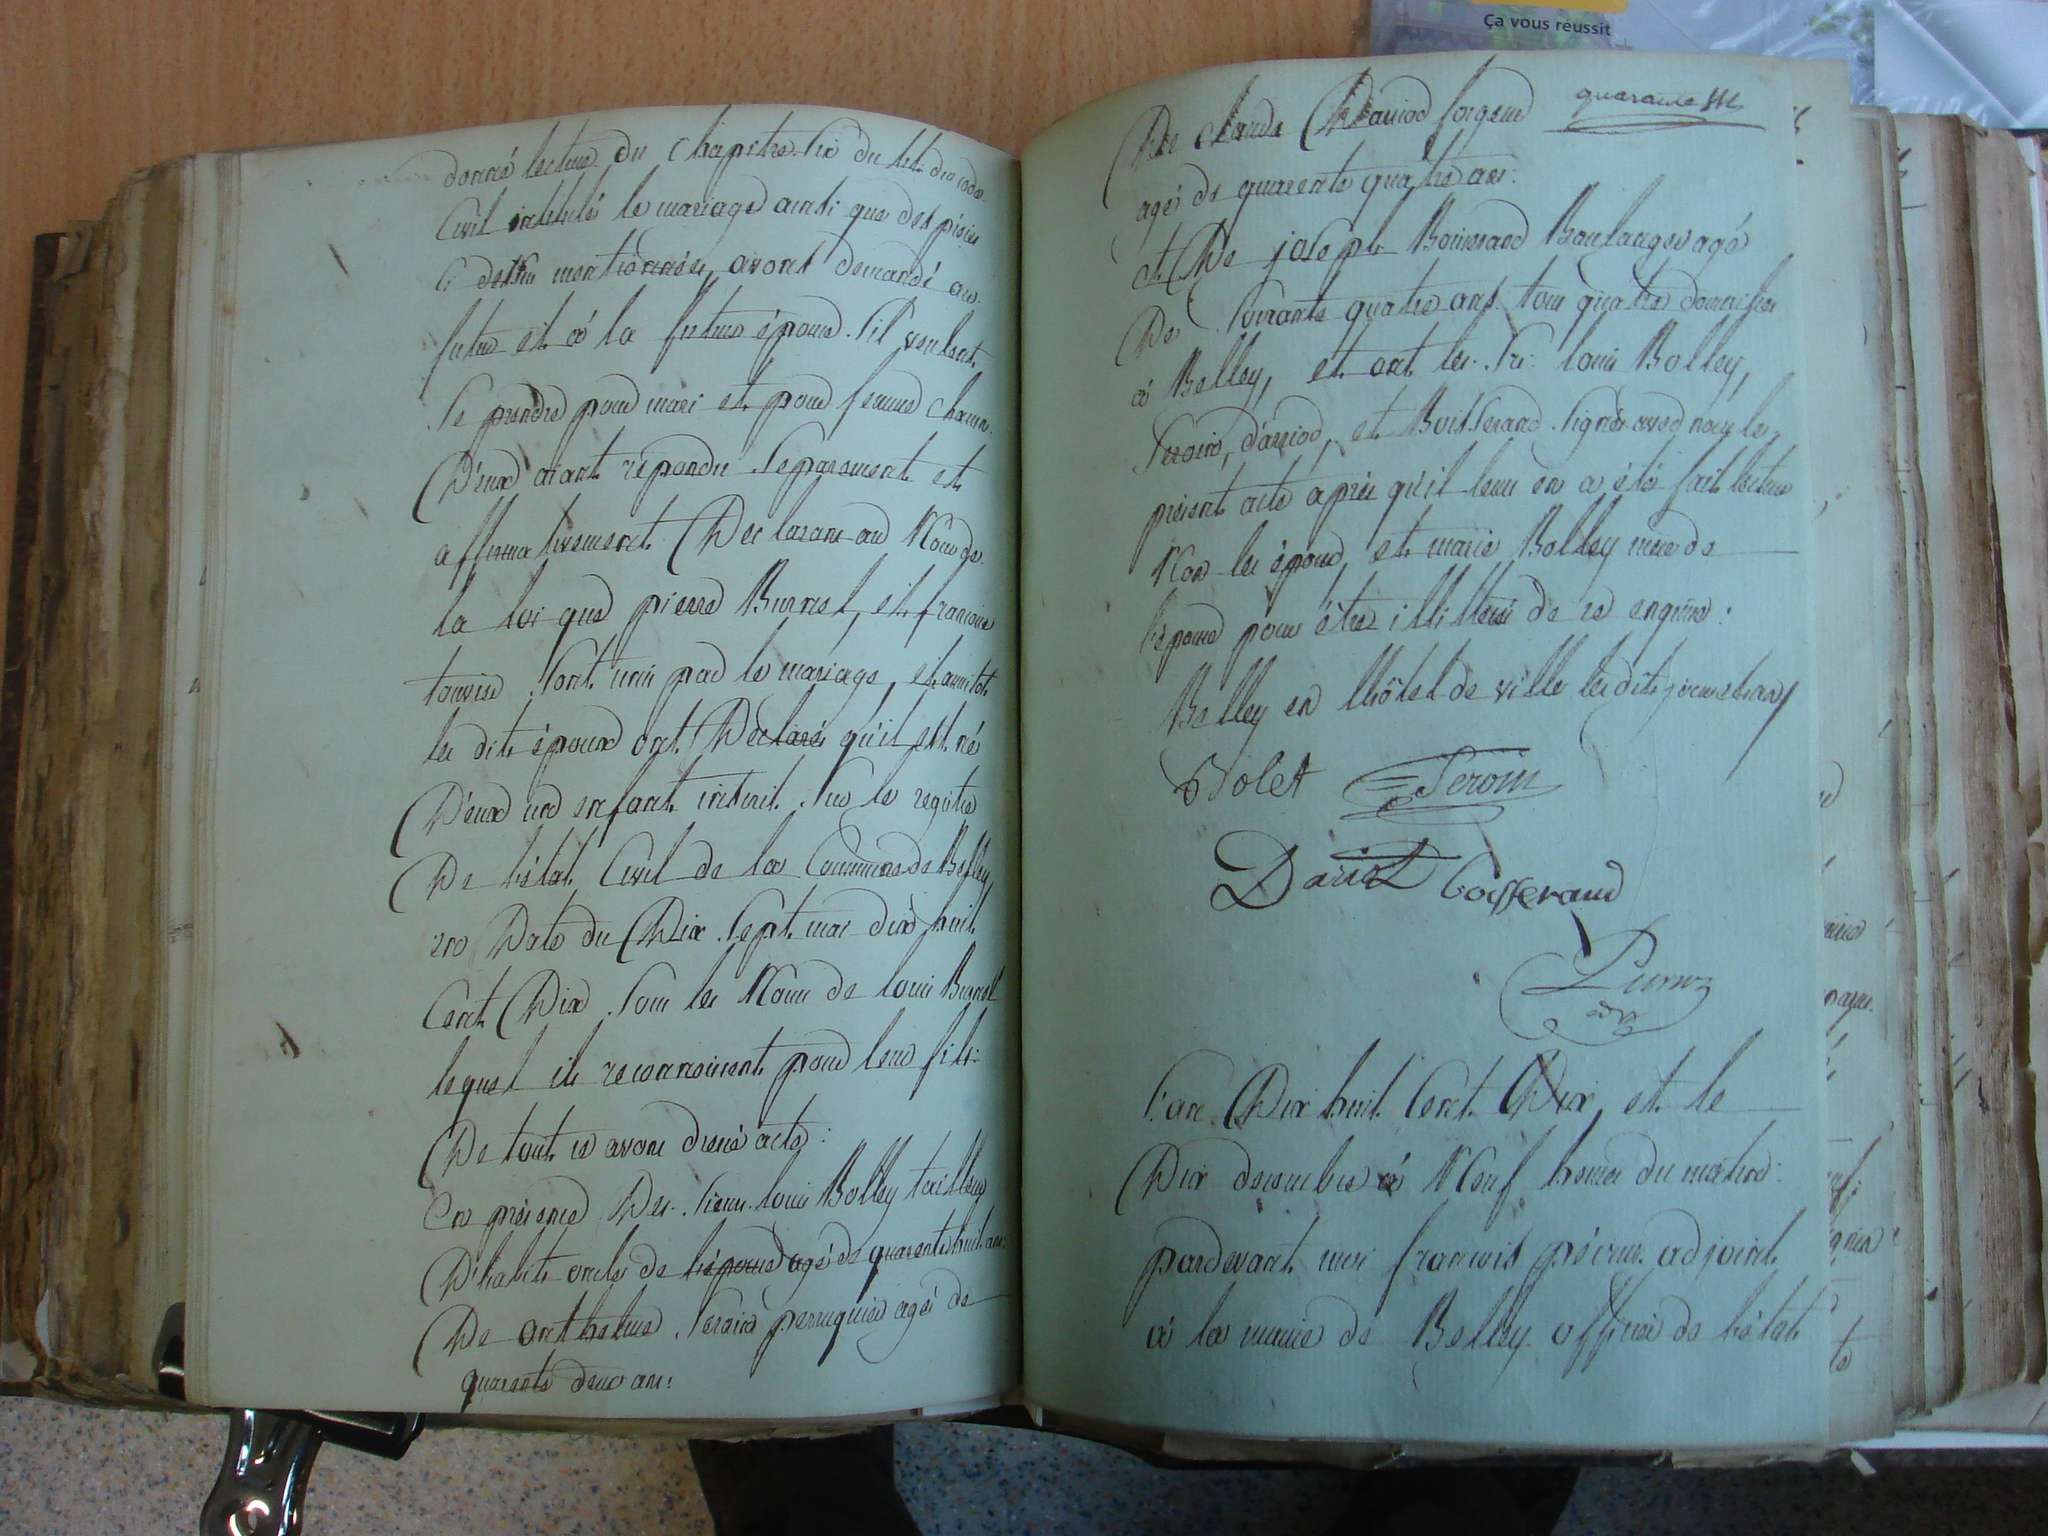 donné lecture du chapitre six du tit. du code
Civil intitulé le mariage ainsi que des pieces
ci dessu mentionnées, avons demandé au
futur et à la future épouse s'il veulent
se prendre pour mari et pour femme chacun
D'eux aiant répondu séparement et
affirmativement Declarons au Nom de
la loi que pierre Burnet, et francoise
sont unis par le mariage, et aussitot
les dits époux ont Déclaré qu'il est né
D'eux un enfant inscrit sur le registre
De l'état Civil de la Commune de Belley
en Date du Dix sept mai dix huit
Cent Dix sous les Noms de louis Burnet
lequel ils reconnoissent pour leur fils.
De tout ce avons dressé acte:
En présence Des sieurs louis Bolley tailleur
D'habits oncle de l'épouse agé de quarente huit ans
De anthelme Seroin perruquier agé de
quarente deux ans:
quarante six
De claude Dauriod
agé de quarente quatre ans:
et De joseph Boisserand Boulanger agé
De soixante quatre ans tous quatre domiciliés
à Belley, et ont les srs. louis Bolley,
Seroin, d'auriod, et Boisserand signés avec nous le
présent acte aprés qu'il leur en a été fait lecture
Non les époux, et marie Bolley mere de
l'épouse pour étre illitérés de ce enquis:
Belley en l'hôtel de ville les dits jour et an
Bolet Seroin
Dauriod boisserand
L'an Dix huit Cent Dix, et le
Dix decembre à Neuf heures du matin:
pardevant moi francois adjoint
à la mairie de Belley officier de l'état
Ça vous réussit